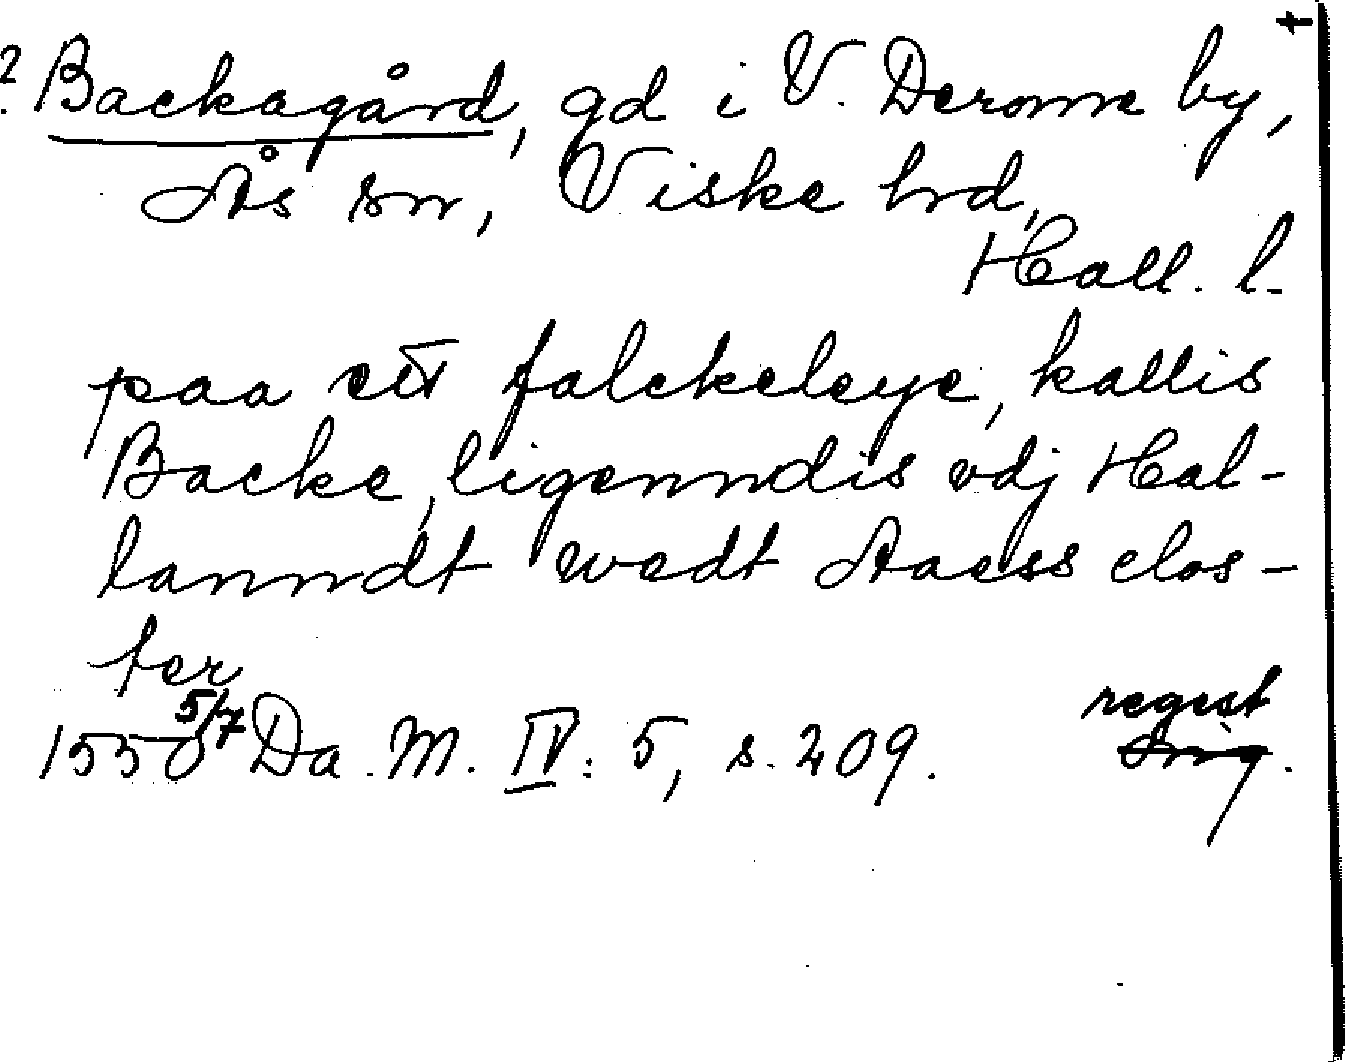 ? Backagård, gd i V. Derome by, †
Ås sn, Viske hd,
Hall. l.
paa ett falckeleye, kallis
Backe, ligenndis vdj Hal-
lanndt wedt Aaess clos-
ter
1550 5/7 Da. M. IV: 5, s. 209. regest
orig.